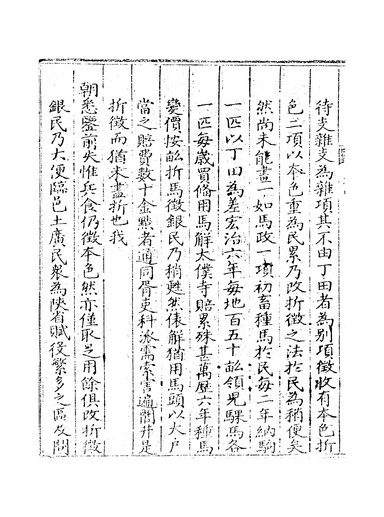 待支雜支為雜項其不由丁田者為别項徵收有本色折
色二項以本色重為民累乃改折徵之法於民為稍便矣
然尚未能畫一如馬政一項初畜種馬於民每二年納駒
一匹以丁田為差宏治六年每地百五十畝領兒騍馬各
一匹每歲買俻用馬解太僕寺賠累殊甚萬歴六年種馬
變價按畝折馬徵銀民乃稍甦然俵解猶用馬頭以大户
當之賠費數十金黠者通同胥吏科派需索害遍閭井是
折徵而猶未盡折也我
朝悉鑒前失惟兵食仍徵本色然亦僅取足用餘俱改折徵
銀民乃大便臨邑土廣民衆為陜省賦役繁多之區及問